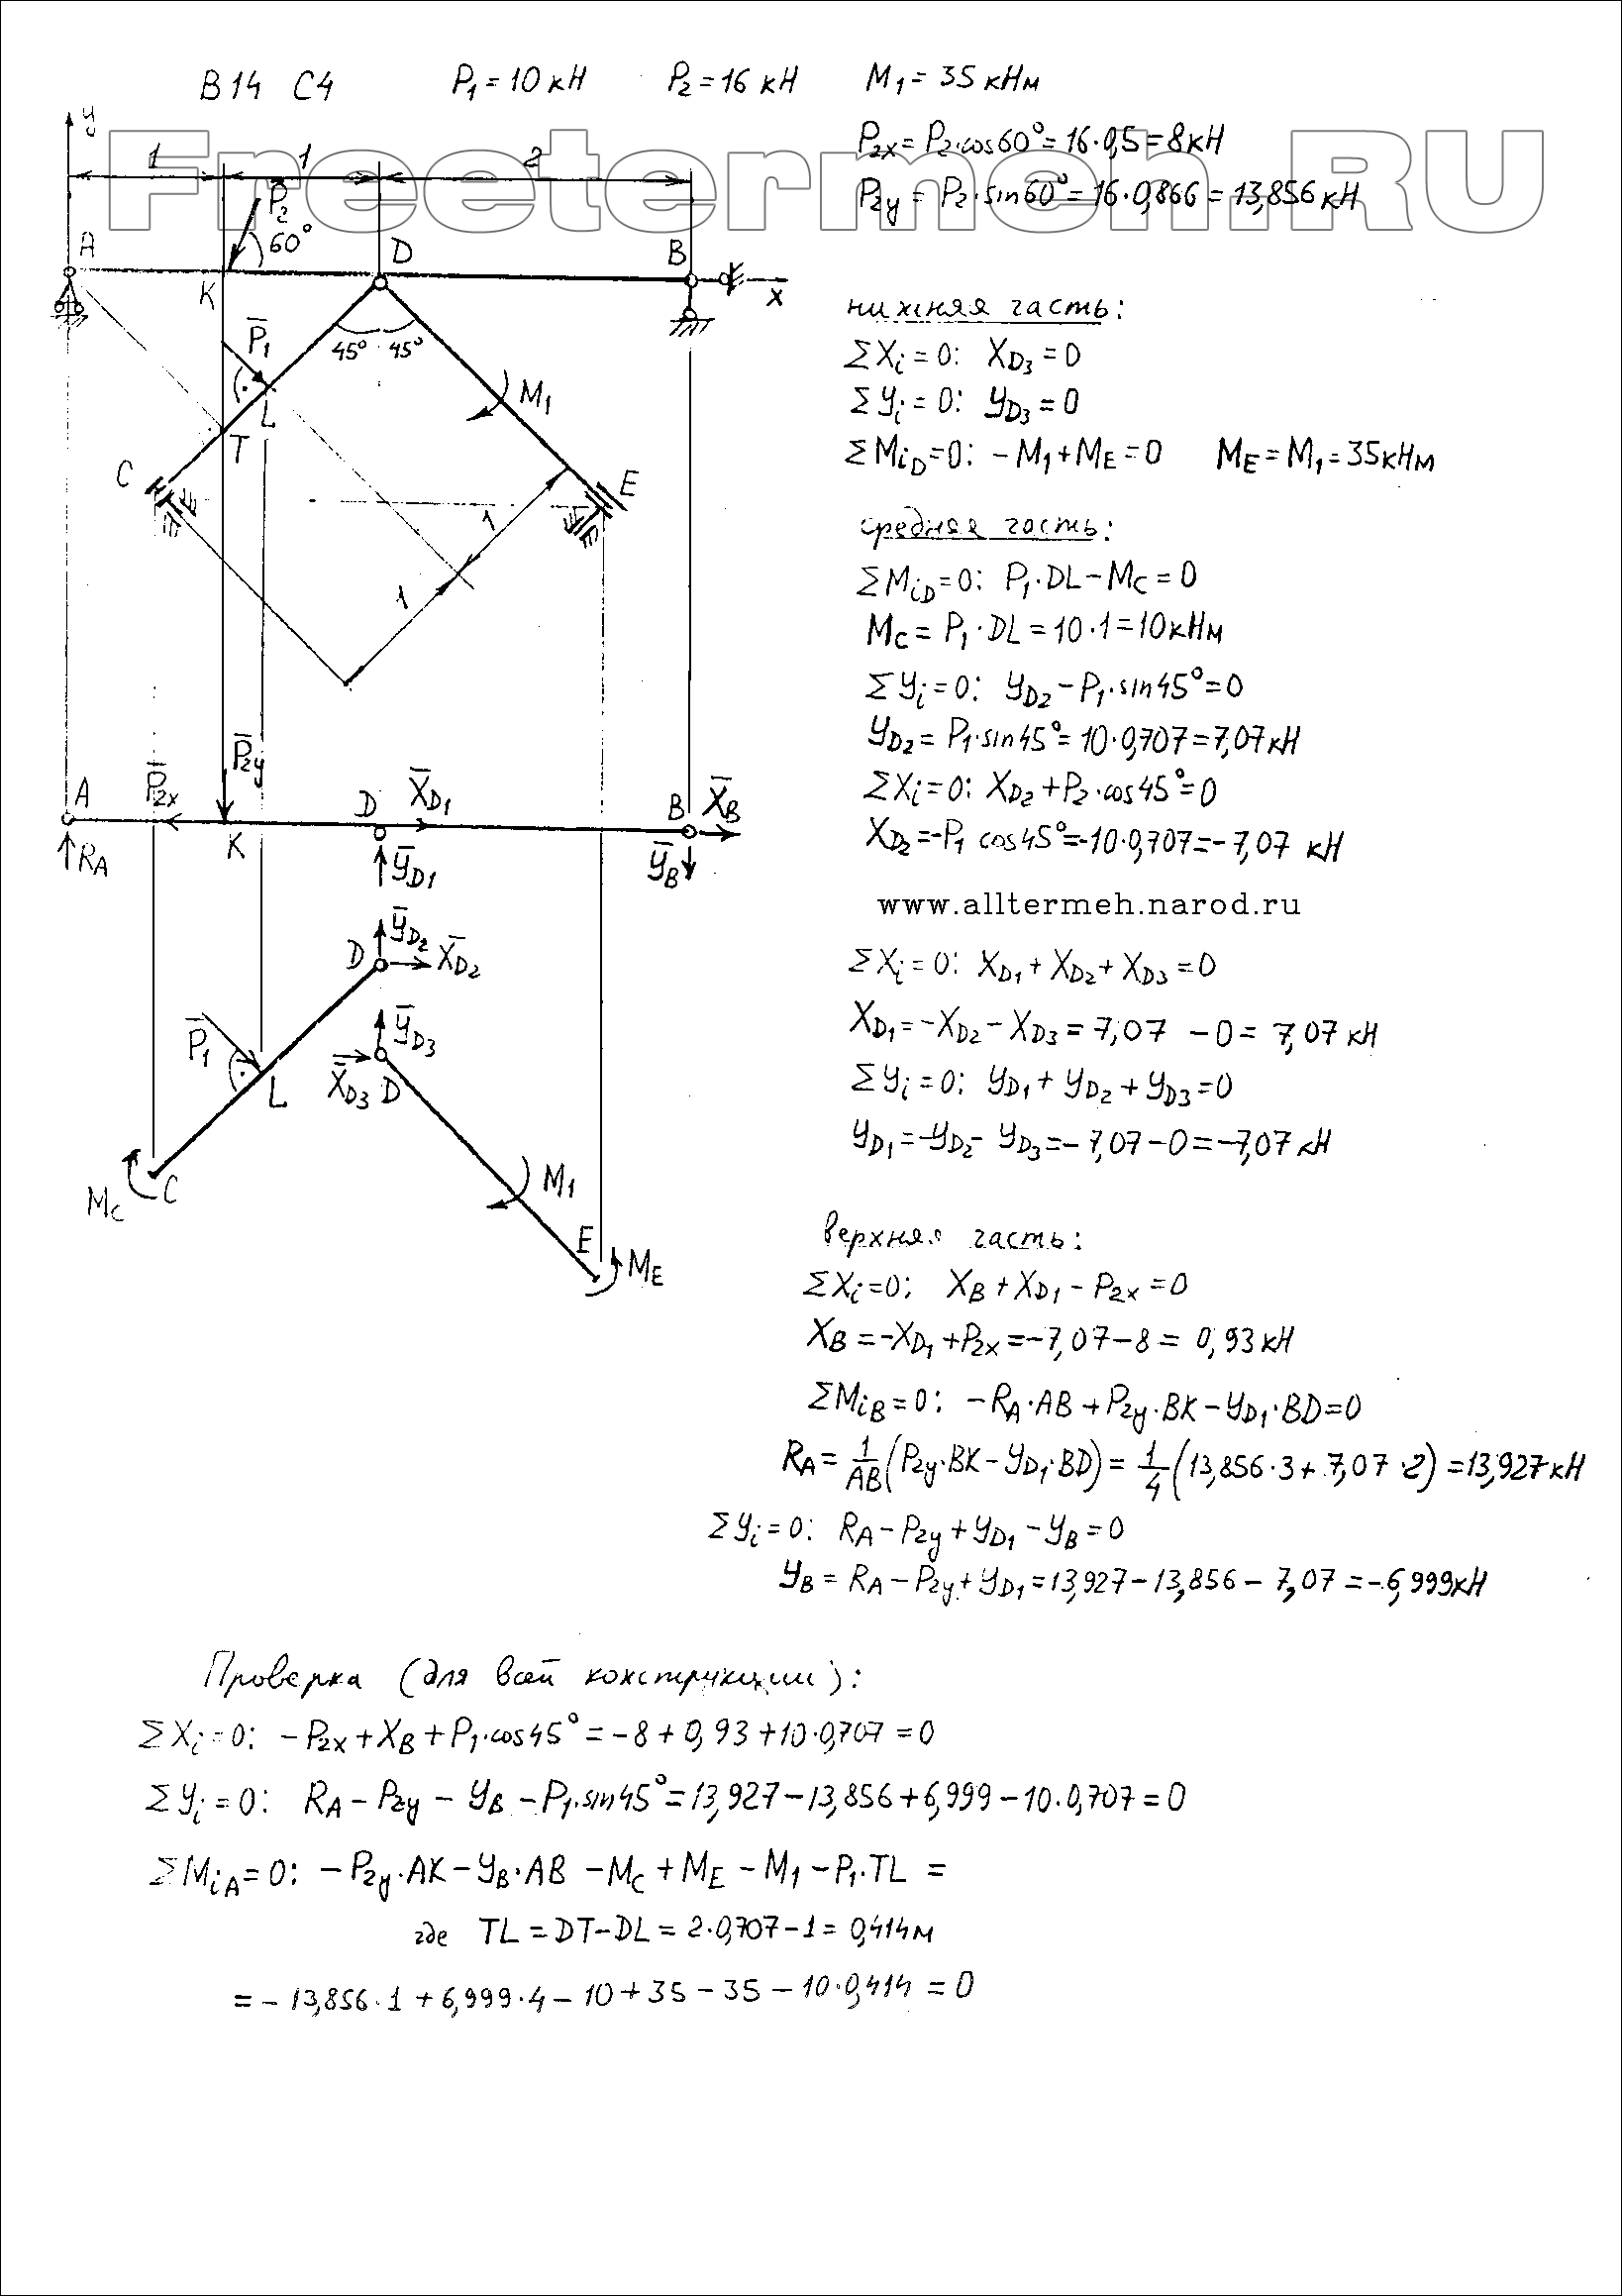 В14 С4 P₁=10 кН P₂=16 кН M₁=35 кНм
Freetermeh.RU
P₂ₓ=P₂·cos60°=16·0,5=8кН
P₂y=P₂·sin60°=16·0,866=13,856кН
y
1 1 2
P̅₂
60°
A K D B x
P̅₁
45° 45°
M₁
L
T
C E
1
1
нижняя часть:
ΣXi=0: X_D3=0
Σyi=0: y_D3=0
ΣM_iD=0: -M₁+M_E=0 M_E=M₁=35кНм
средняя часть:
ΣM_iD=0: P₁·DL-M_C=0
M_C=P₁·DL=10·1=10кНм
Σyi=0: y_D2-P₁·sin45°=0
y_D2=P₁·sin45°=10·0,707=7,07кН
ΣXi=0: X_D2+P₂·cos45°=0
X_D2=-P₁cos45°=-10·0,707=-7,07 кН
www.alltermeh.narod.ru
ΣXi=0: X_D1+X_D2+X_D3=0
X_D1=-X_D2-X_D3=7,07 -0= 7,07 кН
Σyi=0: y_D1+y_D2+y_D3=0
y_D1=-y_D2-y_D3=-7,07-0=-7,07кН
P̅₂y
A P̅₂ₓ D X̅_D1 B X̅_B
K
R_A y̅_D1 y̅_B
y̅_D2
D X̅_D2
P̅₁ y̅_D3
L X̅_D3 D
M_C C M₁
E
M_E
верхняя часть:
ΣXi=0: X_B+X_D1-P₂ₓ=0
X_B=-X_D1+P₂ₓ=-7,07-8= 0,93кН
ΣM_iB=0: -R_A·AB+P₂y·BK-y_D1·BD=0
R_A=1/AB(P₂y·BK-y_D1·BD)=1/4(13,856·3+7,07·2)=13,927кН
Σyi=0: R_A-P₂y+y_D1-y_B=0
y_B=R_A-P₂y+y_D1=13,927-13,856-7,07=-6,999кН
Проверка (для всей конструкции):
ΣXi=0: -P₂ₓ+X_B+P₁·cos45°=-8+0,93+10·0,707=0
Σyi=0: R_A-P₂y-y_B-P₁·sin45°=13,927-13,856+6,999-10·0,707=0
ΣM_iA=0: -P₂y·AK-y_B·AB-M_C+M_E-M₁-P₁·TL=
где TL=DT-DL=2·0,707-1=0,414м
=-13,856·1+6,999·4-10+35-35-10·0,414=0